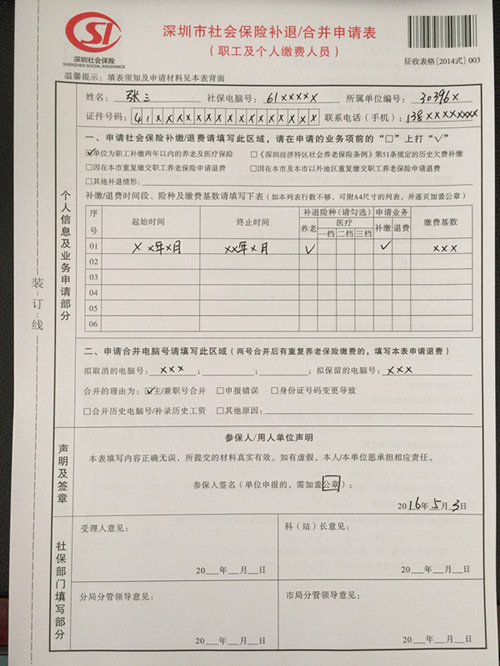 深圳市社会保险补退/合并申请表
(职工及个人缴费人员)
深圳社会保险
SHENZHEN SOCIAL INSURANCE
征收表格[2014式] 003
温馨提示：填表须知及申请材料见本表背面
姓名：张三 社保电脑号：61xxxxx 所属单位编号：30396x
证件号码：41xxxxxxxxxxxxxxxx 联系电话（手机）：138xxxxxxxx
一、申请社会保险补缴/退费请填写此区域，请在申请的业务项前的“□”上打“√”
☑单位为职工补缴两年以内的养老及医疗保险 □《深圳经济特区社会养老保险条例》第51条规定的历史欠费补缴
□因在本市重复缴交职工养老保险申请退费 □因在本市及本市以外地区重复缴交职工养老保险申请退费
□其他补退情形：
补缴/退费时间段、险种及缴费基数请填写下表（如本列表行数不够，可附A4尺寸的列表，并逐页加盖公章）
序号 起始时间 终止时间 补退险种(请勾选) 申请业务 缴费基数
养老 医疗 补缴 退费
一档 二档 三档
01 xx年x月 xx年x月 √ √ xxx
02
03
04
05
06
个人信息及业务申请部分
装订线
二、申请合并电脑号请填写此区域（两号合并后有重复养老保险缴费的，填写本表申请退费）
拟取消的电脑号：xxx ； ； ；拟保留的电脑号：xxx
合并的理由为：☑主/兼职号合并 □申报错误 □身份证号码变更导致
□合并历史电脑号/补录历史工资 □其他原因：
声明及签章
参保人/用人单位声明
本表填写内容正确无误，所提交的材料真实有效。如有虚假，本人/本单位愿承担相应责任。
参保人签名（单位申报的，需加盖公章）：
2016年5月3日
社保部门填写部分
受理人意见： 科（站）长意见：
20__年__月__日 20__年__月__日
分局分管领导意见： 市局分管领导意见：
20__年__月__日 20__年__月__日